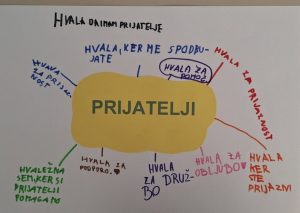 HVALA DA IMAM PRIJATELJE
HVALA, KER ME SPODBU-
JATE
HVALA ZA
POMOČ
HVALA ZA PRIJAZNOST
HVALA
ZA PRIJAZ
NOST
PRIJATELJI
HVALEŽNA
SEM KER SI
PRIJATELJI
POMAGAMO
HVALA ZA
PODPORO.
HVALA
ZA DRUŽ-
BO
HVALA ZA
OBLJUBO
HVALA
KER
STE
PRIJAZNI